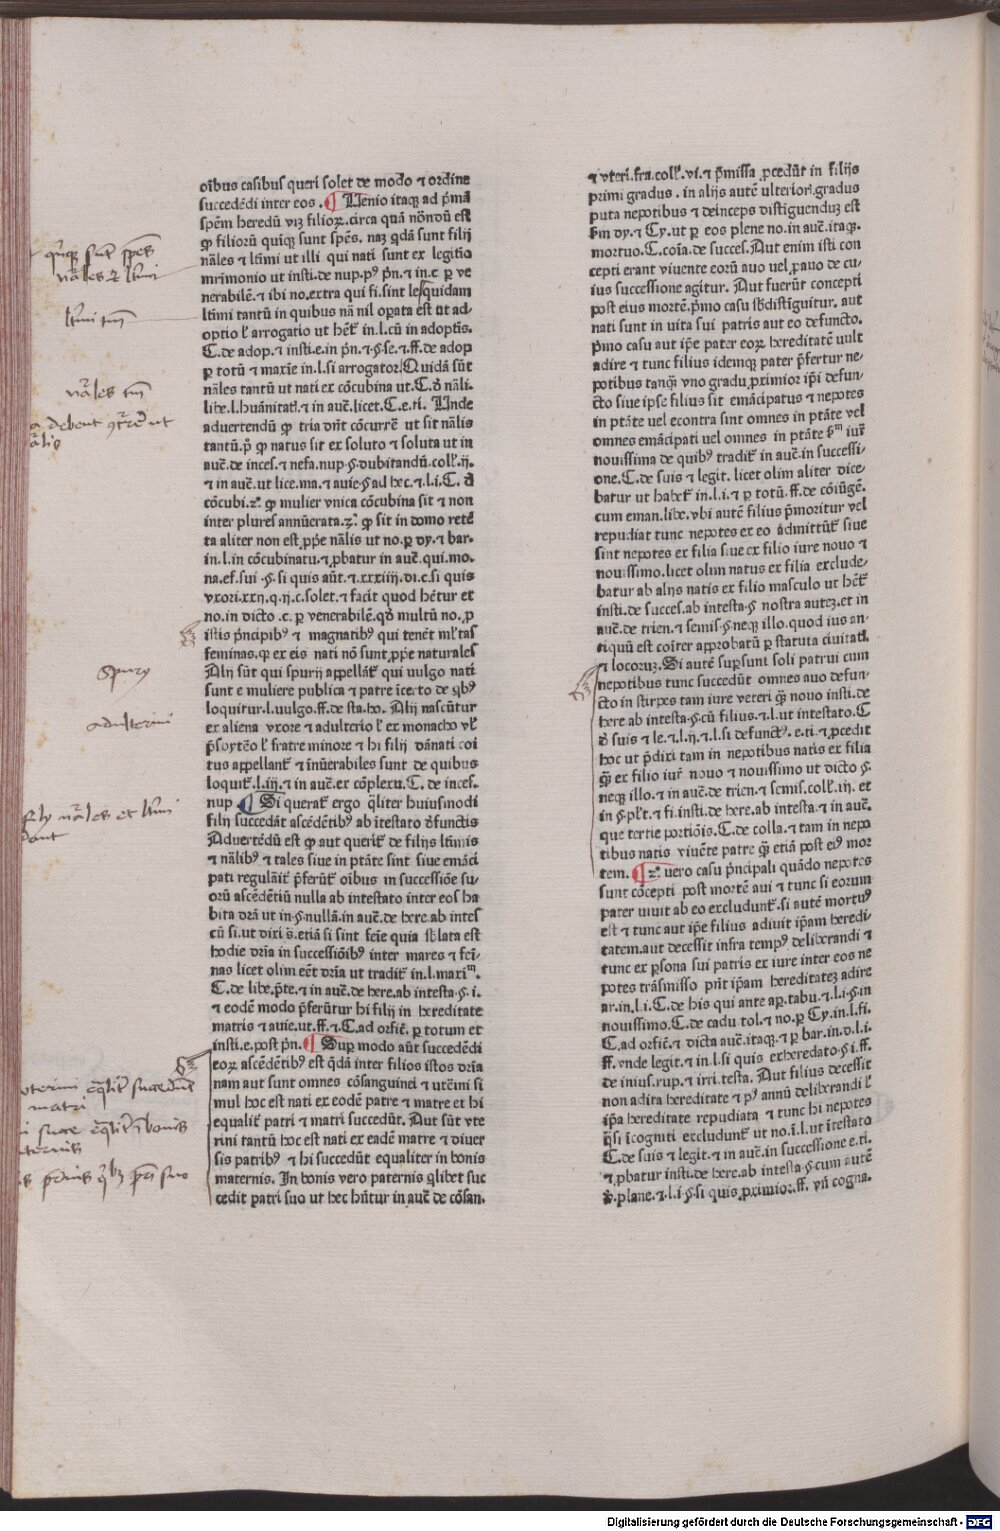 oībus casibus queri solet de modo ⁊ ordine
succedēdi inter eos . Uenio itaq; ad p̄mā
spēm heredū viz filioꝝ. circa quā nōndū est
ꝙ filiorū quīq; sunt spēs. naz q̄dā sunt filij
nāles ⁊ ltīmi ut illi qui nati sunt ex legitīo
mrīmonio ut insti. de nup. pꝰ pn̄. ⁊ in. c ꝑ ve
nerabilē. ⁊ ibi no. extra qui fi. sint le quidam
ltīmi tantū in quibus nā nil opata est ut ad-
optio ł arrogatio ut hēt̄ in. l. cū in adoptis.
C. de adop. ⁊ insti. e. in pn̄. ⁊ §. se. ⁊ ff. de adop
ꝑ totū ⁊ maxīe in. l. si arrogator. Quidā sūt
nāles tantū ut nati ex cōcubina ut. C. ꝺ nāli.
libe. l. huānitatꝭ. ⁊ in auc̄. licet. C. e. ti. Unde
aduertendū ꝙ tria dn̄t cōcurrē ut sit nālis
tantū. p̄ ꝙ natus sit ex soluto ⁊ soluta ut in
auc̄. de inces. ⁊ nefa. nup. §. dubitandū. coll̄. ij.
⁊ in auc̄. ut lice. ma. ⁊ auie. § ad hec. ⁊ l. i. C. ꝺ
cōcubi. 2º. ꝙ mulier vnica cōcubina sit ⁊ non
inter plures annūerata. 3º. ꝙ sit in domo retē
ta aliter non est ꝓp̄e nālis ut no. ꝑ dy. ⁊ bar.
in. l. in cōcubinatu. ⁊ ꝓbatur in auc̄. qui. mo.
na. ef. sui . §. si quis aūt. ⁊. xxxiiij. di. c. si quis
vxori. xxij. q. ij. c. solet. ⁊ facit quod hētur et
no. in dicto .c. ꝑ venerabilē. qꝺ̄ multū no. ꝓ
istis pn̄cipibꝰ ⁊ magnatibꝰ qui tenēt ml̄tas
feminas. ꝙ ex eis nati nō sunt ꝓp̄e naturales
Alij sūt qui spurij appellāt᷑ qui uulgo nati
sunt e muliere publica ⁊ patre īce. to de qbꝰ
loquitur. l. uulgo. ff. de sta. ho. Alij nascūtur
ex aliena vxore ⁊ adulterio ł ex monacho vł
p̄sbytēo ł fratre minore ⁊ hi filij dānati coi
tus appellant᷑ ⁊ inūerabiles sunt de quibus
loquit᷑. l. iij. ⁊ in auc̄. ex cōplexu. C. de inces.
nup . Si querat᷑ ergo q̄liter huiusmodi
filij succedāt ascēdētibꝰ ab ītestato ꝺfunctis
Aduertēdū est ꝙ aut querit᷑ de filijs ltīmis
⁊ nālibꝰ ⁊ tales siue in ptāte sint siue emāci
pati regulāit᷑ p̄ferūt᷑ oībus in successiōe su-
orū ascēdētiū nulla ab intestato inter eos ha
bita drā ut in. §. nullā. in auc̄. de here. ab intes
cū si. ut dixi s̄. etiā si sint feīe quia sb̄lata est
hodie drīa in successiōibꝰ inter mares ⁊ feī-
nas licet olim eēt drīa ut tradit᷑ in. l. maxīᵐ.
C. de libe. pte. ⁊ in auc̄. de here. ab intesta. §. i.
⁊ eodē modo p̄ferūtur hi filij in hereditate
matris ⁊ auie. ut. ff. ⁊ C. ad orfic̄. ꝑ totum et
insti. e. post pn̄. Suꝑ modo aūt succedēdi
eoꝝ ascēdētibꝰ est q̄dā inter filios istos drīa
nam aut sunt omnes cōsanguinei ⁊ utēini si
mul hoc est nati ex eodē patre ⁊ matre et hi
equalit᷑ patri ⁊ matri succedūt. Aut sūt vte
rini tantū hoc est nati ex eadē matre ⁊ diuer
sis patribꝰ ⁊ hi succedūt equaliter in bonis
maternis. In bonis vero paternis q̄libet suc
cedit patri suo ut hec hn̄tur in auc̄ de cōsan.
⁊ vteri. fra. coll̄. vi. ⁊ p̄missa ꝓcedūt in filijs
primi gradus . in alijs autē ulteriorꝭ. gradus
puta nepotibus ⁊ deinceps distiguenduz est
ẜm dy. ⁊ Cy. ut ꝑ eos plene no. in auc̄. itaq;.
mortuo. C. cōīa. de succes. Aut enim isti con
cepti erant viuente eorū auo vel ꝓauo de cu-
ius successione agitur. Aut fuerūt concepti
post eius mortē. p̄mo casu sb̄distiguitur. aut
nati sunt in uita sui patris aut eo defuncto.
p̄mo casu aut ip̄e pater eoꝝ hereditatē uult
adire ⁊ tunc filius idemq; pater p̄fertur ne-
potibus tanq̄ vno gradu ꝓximior ip̄i defun-
cto siue ipse filius sit emācipatus ⁊ nepotes
in ptāte vel econtra sint omnes in ptāte vel
omnes emācipati uel omnes in ptāte ẜm iur̄
nouissima de quibꝰ tradit᷑ in auc̄. in successi-
one. C. de suis ⁊ legit. licet olim aliter dice-
batur ut habet᷑ in. l. i. ⁊ ꝑ totū. ff. de cōiūgē.
cum eman. libe. vbi autē filius p̄moritur vel
repudiat tunc nepotes ex eo admittūt᷑ siue
sint nepotes ex filia siue ex filio iure nouo ⁊
nouissimo. licet olim natus ex filia exclude-
batur ab alijs natis ex filio masculo ut hēt᷑
insti. de succes. ab intesta. § nostra autez. et in
auc̄. de trien. ⁊ semis. § neq; illo. quod ius an-
tiquū est coīter approbatū ꝑ statuta ciuitatꝭ.
⁊ locoruz. Si autē suꝑsunt soli patrui cum
nepotibus tunc succedūt omnes auo defun-
cto in stirpes tam iure veteri q̄ nouo insti. de
here ab intesta. § cū filius. ⁊. l. ut intestato. C
ꝺ suis ⁊ le. ⁊ l. ij. ⁊ l. si defunctꝰ. e. ti. ⁊ ꝓcedit
hoc ut p̄dixi tam in nepotibus natis ex filia
q̄ ex filio iur̄ nouo ⁊ nouissimo ut dicto §.
neq; illo. ⁊ in auc̄. de trien. ⁊ semis. coll̄. iij. et
in §. pl̄t. ⁊ fi. insti. de here. ab intesta. ⁊ in auc̄.
que tertie portiōis. C. de colla. ⁊ tam in nepo
tibus natis viuēte patre q̄ etiā post eiꝰ mor
tem. 2º. uero casu pn̄cipali quādo nepotes
sunt cōcepti post mortē aui ⁊ tunc si eorum
pater uiuit ab eo excludunt᷑. si autē mortuꝰ
est ⁊ tunc aut ip̄e filius adiuit ip̄am heredi-
tatem. aut decessit infra tempꝰ deliberandi ⁊
tunc ex ꝑsona sui patris ex iure inter eos ne
potes trāsmisso pn̄t ip̄am hereditatez adire
ar. in. l. i. C. de his qui ante aꝑ. tabu. ⁊. l. i. § in
nouissimo. C. de cadu. tol. ⁊ no. ꝑ Cy. in. l. fi.
C. ad orfic̄. ⁊ dicta auc̄. itaq;. ⁊ ꝑ bar. in. d. l. i.
ff. vnde legit. ⁊ in. l. si quis exheredato. § i. ff.
de inius. rup. ⁊ irri. testa. Aut filius decessit
non adita hereditate ⁊ pꝰ annū deliberandi ł
ip̄a hereditate repudiata ⁊ tunc hi nepotes
q̄si īcogniti excludunt᷑ ut no. ī. l. ut ītestato
C. de suis ⁊ legit. ⁊ in auc̄. in successione e. ti.
⁊ ꝓbatur insti. de here. ab intesta. § cum autē
ꝟ. plane. ⁊. l. i §. si quis ꝓximior. ff. vn̄ cogna.
Spurij
adulterini